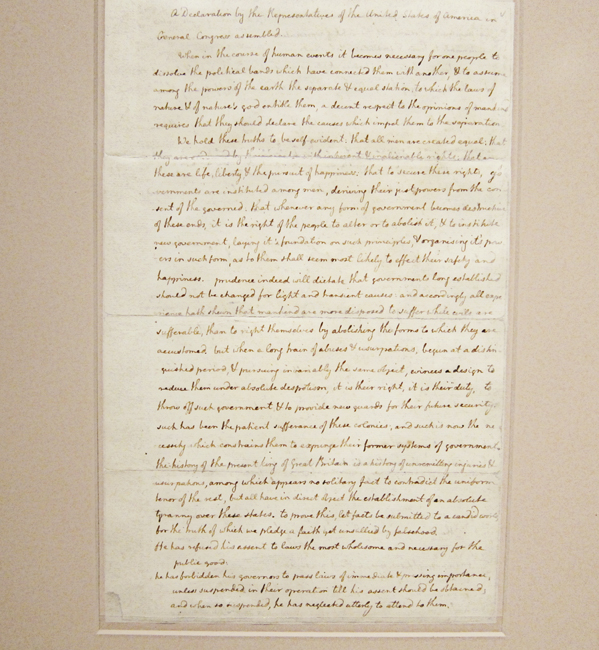 A Declaration by the Representatives of the United States of America in
General Congress assembled.
When in the course of human events it becomes necessary for one people to
dissolve the political bands which have connected them with another, & to assume
among the powers of the earth the separate & equal station to which the laws of
nature & of nature's god entitle them, a decent respect to the opinions of mankind
requires that they should declare the causes which impel them to the separation.
We hold these truths to be self evident: that all men are created equal; that
they are endowed by their creator with inherent & inalienable rights; that
these are life, liberty & the pursuit of happiness: that to secure these rights, go
vernments are instituted among men, deriving their just powers from the con
sent of the governed. that whenever any form of government becomes destructive
of these ends, it is the right of the people to alter or to abolish it, & to institute
new government, laying it's foundation on such principles, & organising it's pow
ers in such form, as to them shall seem most likely to effect their safety and
happiness. prudence indeed will dictate that governments long established
should not be changed for light and transient causes: and accordingly all expe
rience hath shewn that mankind are more disposed to suffer while evils are
sufferable, than to right themselves by abolishing the forms to which they are
accustomed. but when a long train of abuses & usurpations, begun at a distin
guished period, & pursuing invariably the same object, evinces a design to
reduce them under absolute despotism, it is their right, it is their duty, to
throw off such government, & to provide new guards for their future security.
such has been the patient sufferance of these colonies; and such is now the ne
cessity which constrains them to expunge their former systems of government.
the history of the present king of Great Britain is a history of unremitting injuries &
usurpations, among which appears no solitary fact to contradict the uniform
tenor of the rest, but all have in direct object the establishment of an absolute
tyranny over these states. to prove this, let facts be submitted to a candid world,
for the truth of which we pledge a faith yet unsullied by falsehood.
He has refused his assent to laws the most wholesome and necessary for the
public good:
he has forbidden his governors to pass laws of immediate & pressing importance,
unless suspended in their operation till his assent should be obtained;
and when so suspended, he has neglected utterly to attend to them.